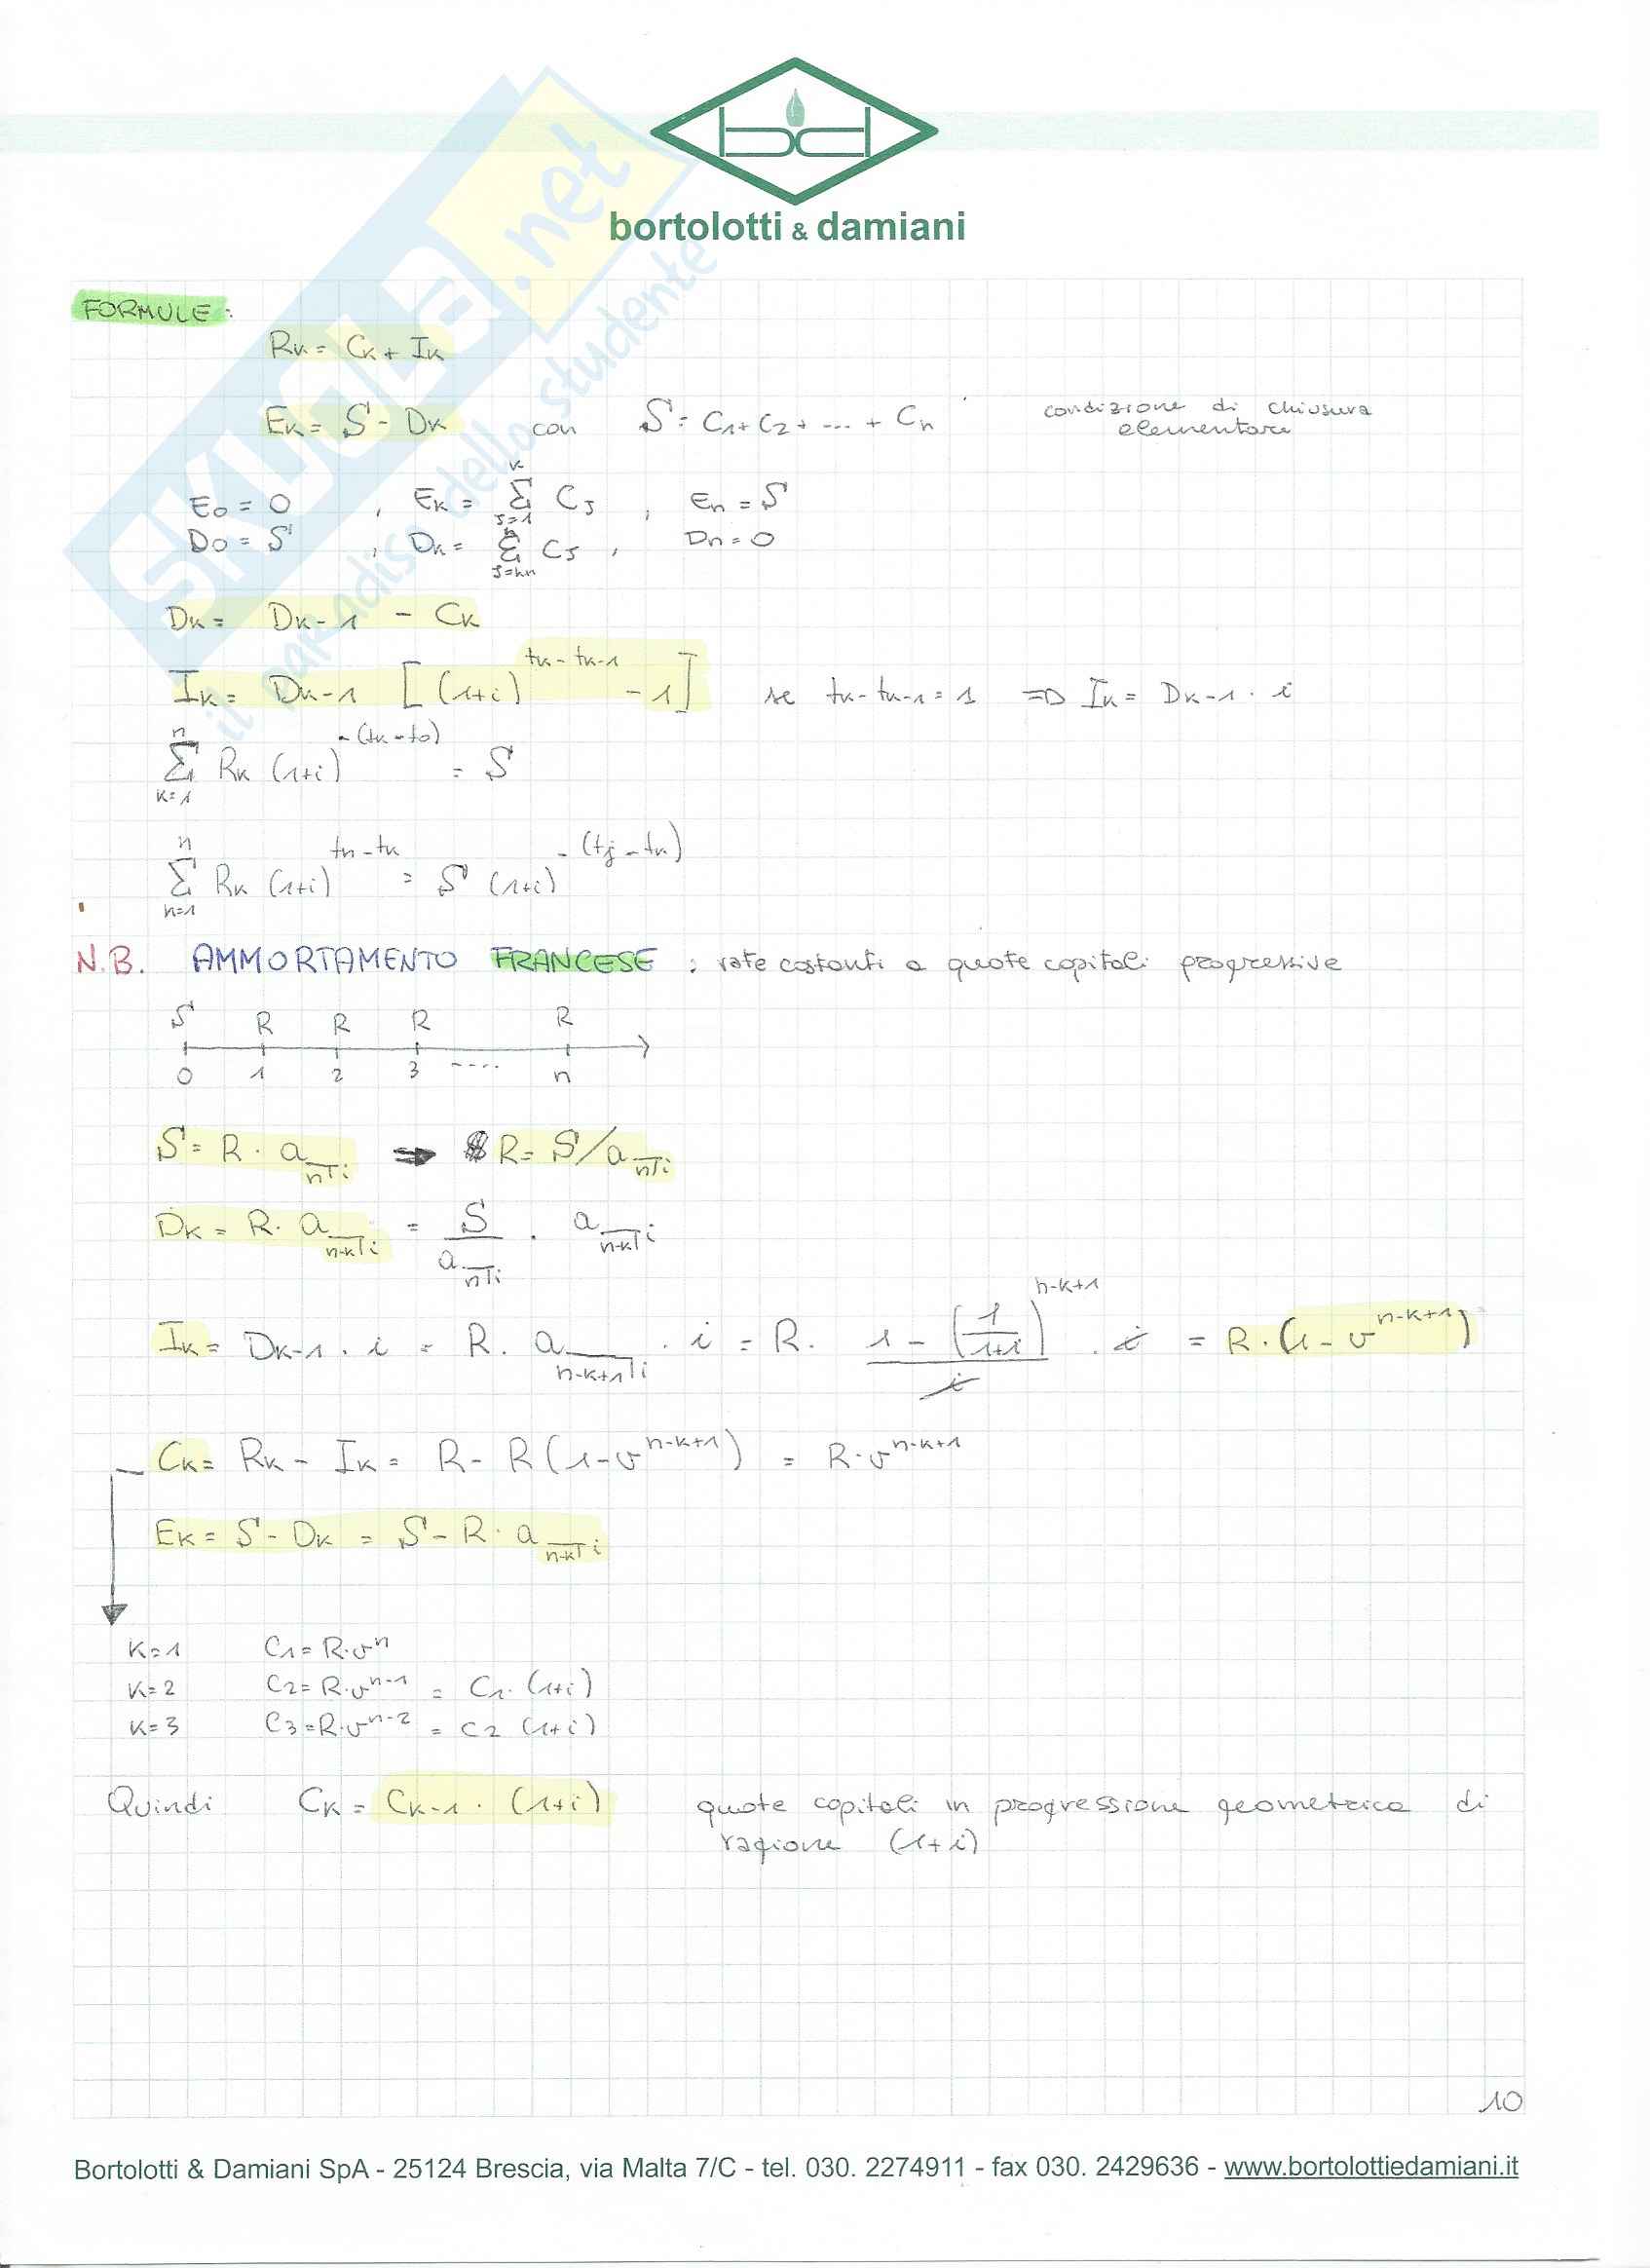 bd
bortolotti & damiani
SKUOLA.net
il paradiso dello studente
FORMULE:
Rk = Ck + Ik
Ek = S - Dk con S = C1 + C2 + ... + Cn condizione di chiusura
elementare
E0 = 0 , Ek = Σ_{J=1}^{k} CJ , En = S
D0 = S , Dk = Σ CJ , Dn = 0
Dk = Dk-1 - Ck
Ik = Dk-1 [(1+i)^{tk-tk-1} - 1] se tk-tk-1 = 1 => Ik = Dk-1 · i
Σ_{k=1}^{n} Rk (1+i)^{-(tk-t0)} = S
Σ_{n=1}^{n} Rk (1+i)^{tn-tk} = S (1+i)^{-(tj-tn)}
N.B. AMMORTAMENTO FRANCESE : rate costanti a quote capitali progressive
S R R R R
0 1 2 3 .... n
S = R · a_{n⌉i} => R = S/a_{n⌉i}
Dk = R · a_{n-k⌉i} = S/a_{n⌉i} · a_{n-k⌉i}
Ik = Dk-1 · i = R · a_{n-k+1⌉i} · i = R · (1 - (1/(1+i))^{n-k+1})/i · i = R · (1 - v^{n-k+1})
Ck = Rk - Ik = R - R(1 - v^{n-k+1}) = R · v^{n-k+1}
Ek = S - Dk = S - R · a_{n-k⌉i}
K=1 C1 = R·v^n
K=2 C2 = R·v^{n-1} = C1·(1+i)
K=3 C3 = R·v^{n-2} = C2 (1+i)
Quindi Ck = Ck-1 · (1+i) quote capitali in progressione geometrica di
ragione (1+i)
10
Bortolotti & Damiani SpA - 25124 Brescia, via Malta 7/C - tel. 030. 2274911 - fax 030. 2429636 - www.bortolottiedamiani.it